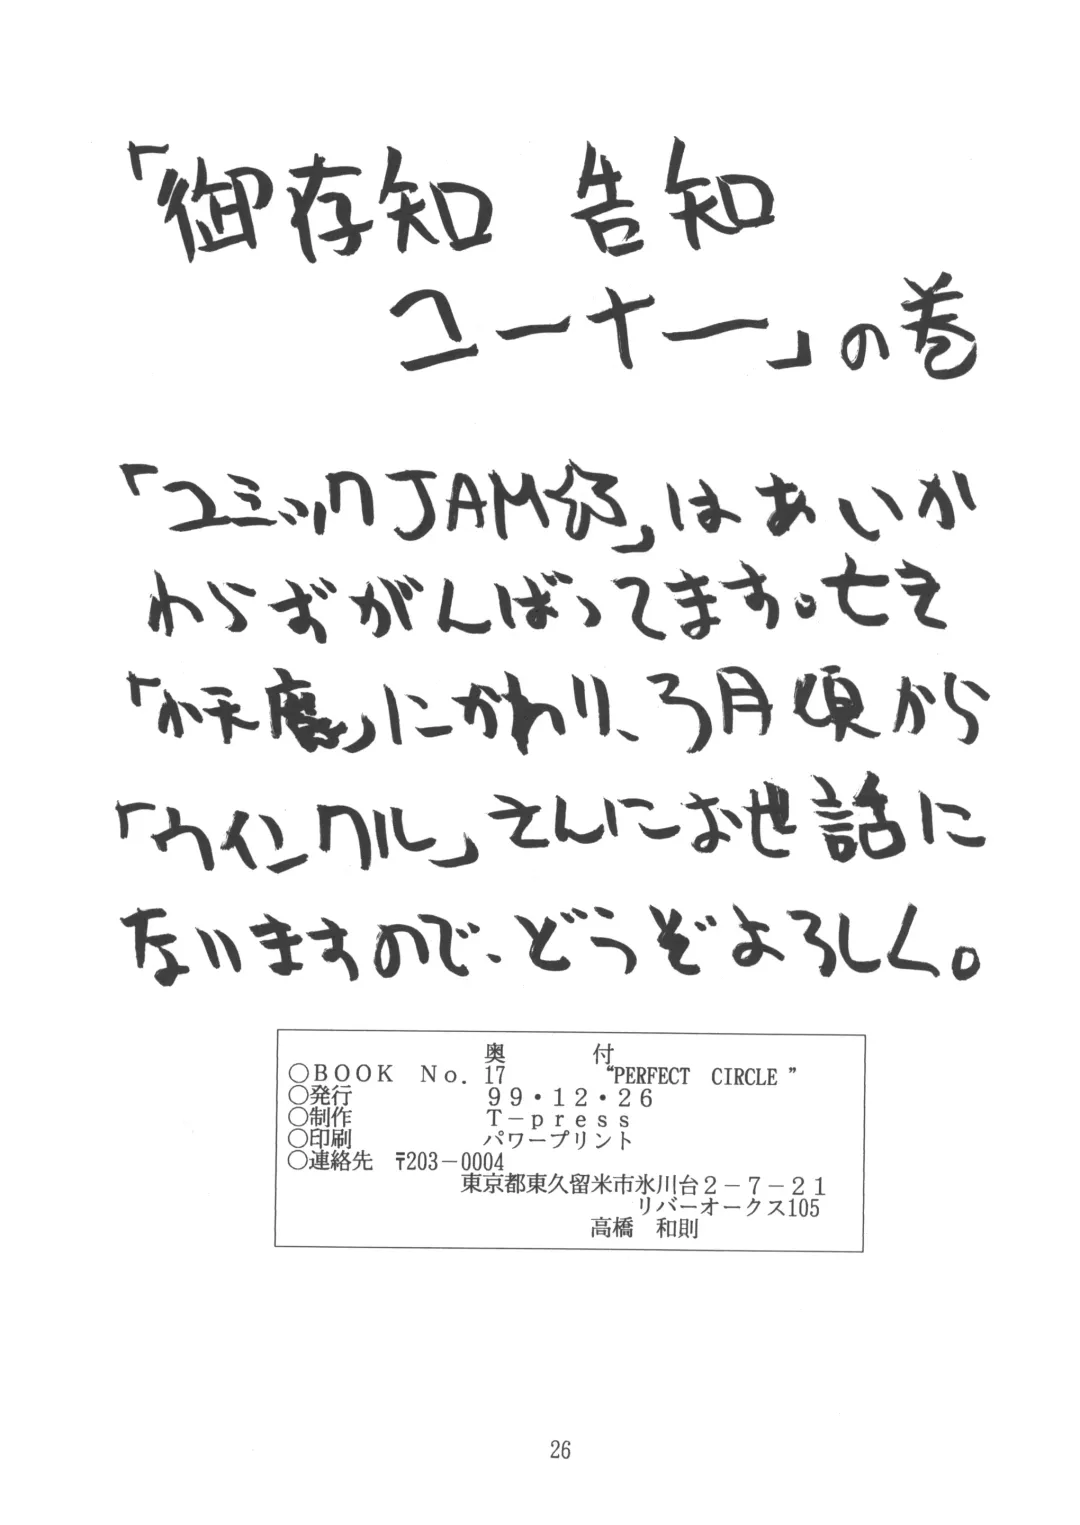 「御存知 告知
コーナー」の巻
「コミックJAM☆」はあいか
わらずがんばってます。亡き
「小天魔」にかわり、3月頃から
「ウインクル」さんにお世話に
なりますので、どうぞよろしく。
奥　　　付
○BOOK　No. 17　　　　“PERFECT　CIRCLE ”
○発行　　　　　　99・12・26
○制作　　　　　　T－press
○印刷　　　　　　パワープリント
○連絡先　〒203－0004
東京都東久留米市氷川台2－7－21
リバーオークス105
高橋　和則
26